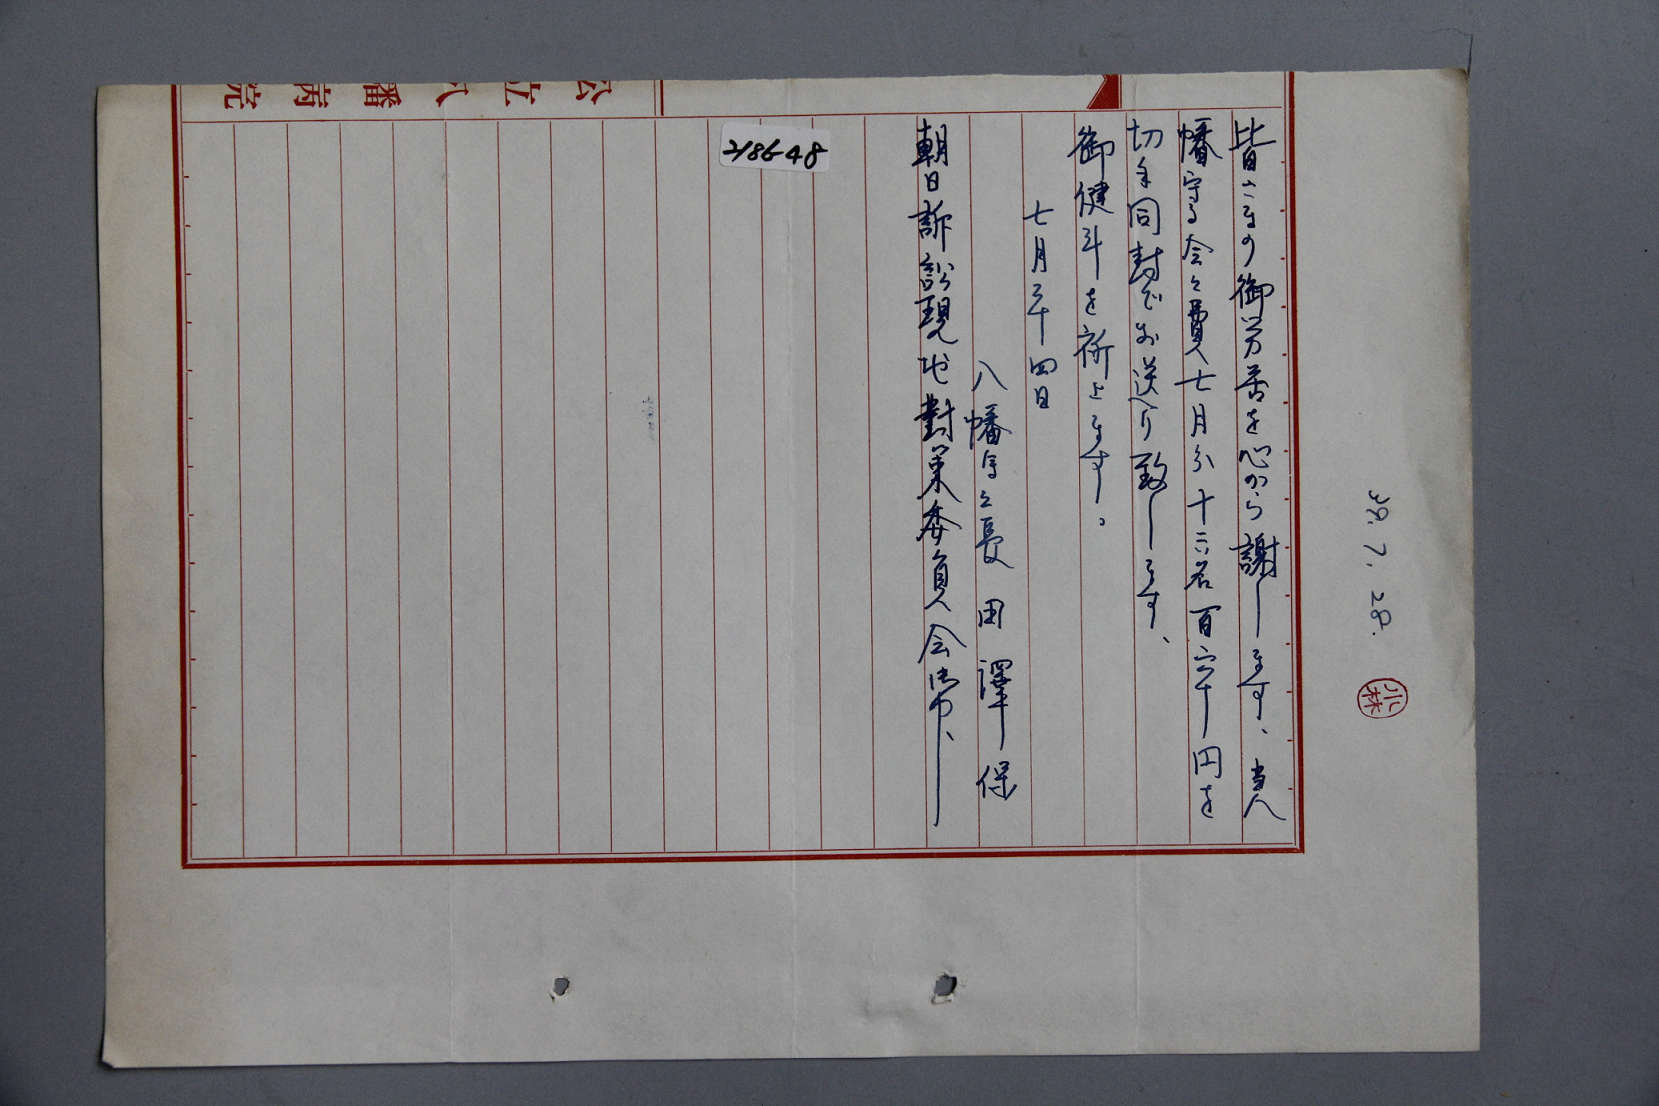 皆さまの御労苦を心から謝します、当八
幡守る会々費七月分十六名百六十円を
切手同封でお送り致します、
御健斗を祈上ます。
七月二十四日
八幡守る会長 田澤保
朝日訴訟現地對策委員会御中、
39.7.28.
小林
2186-48
公立八幡病院